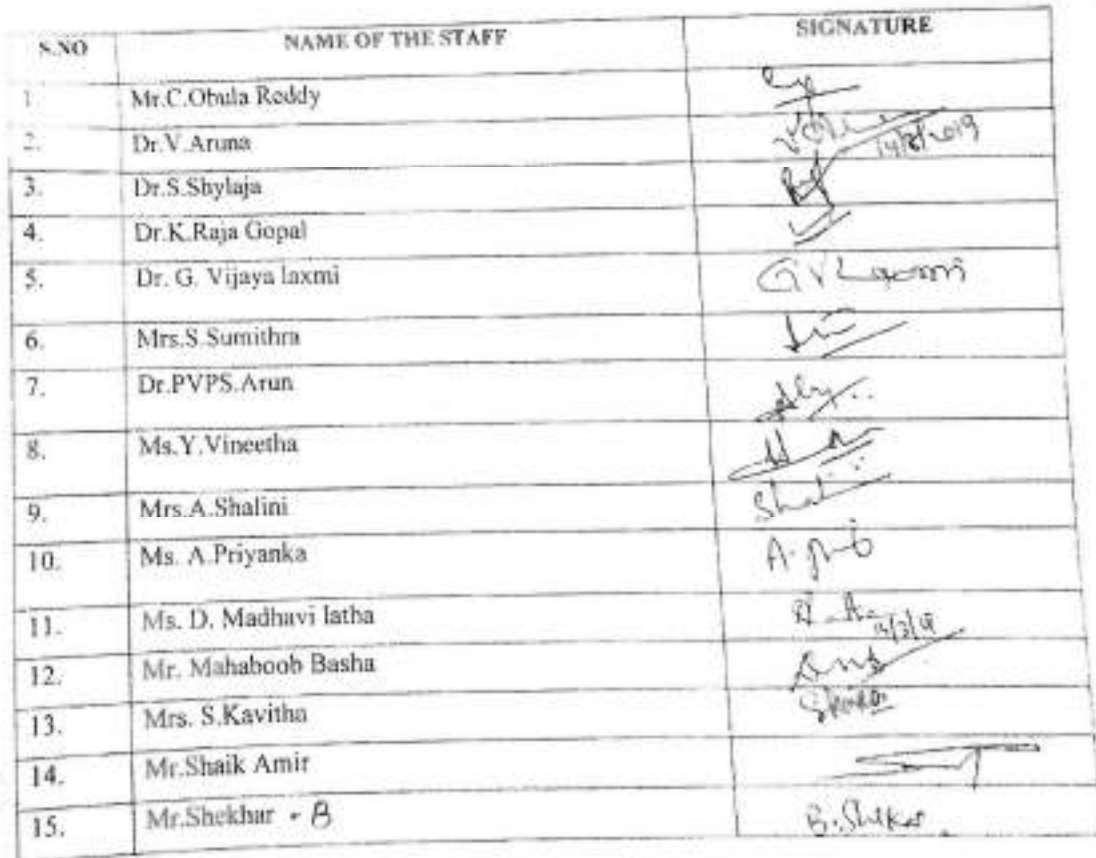 S.NO NAME OF THE STAFF SIGNATURE
1. Mr.C.Obula Reddy
2. Dr.V.Aruna 14/3/2019
3. Dr.S.Shylaja
4. Dr.K.Raja Gopal
5. Dr. G. Vijaya laxmi G V Laxmi
6. Mrs.S.Sumithra
7. Dr.PVPS.Arun
8. Ms.Y.Vineetha
9. Mrs.A.Shalini Shalini
10. Ms. A.Priyanka
11. Ms. D. Madhavi latha 14/3/19
12. Mr. Mahaboob Basha
13. Mrs. S.Kavitha
14. Mr.Shaik Amir
15. Mr.Shekhar - B B.Shekar